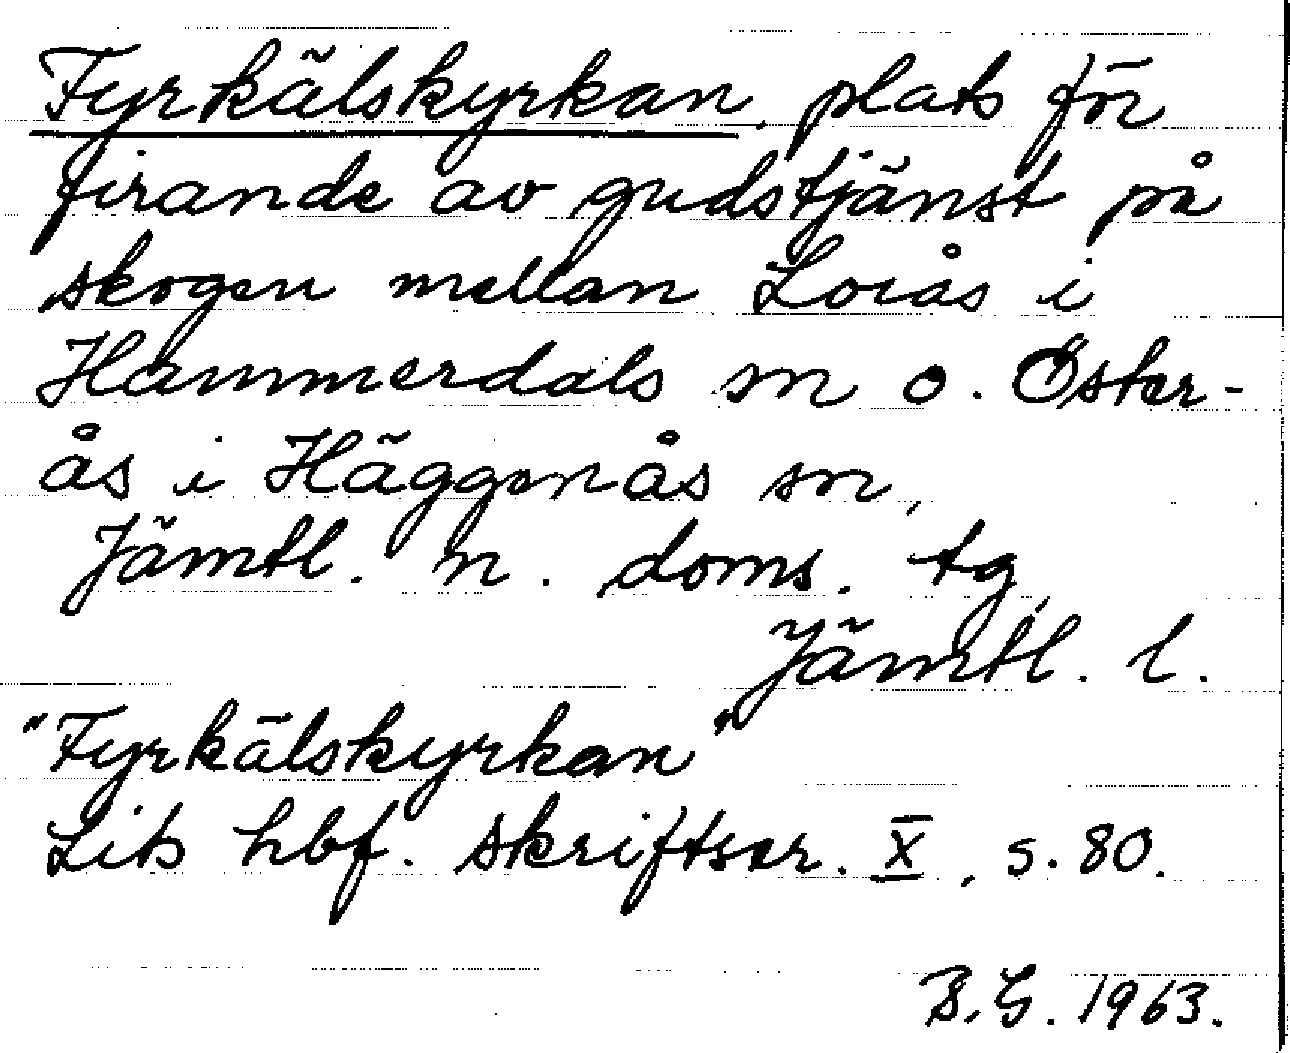 Fyrkälskyrkan, plats för
firande av gudstjänst på
skogen mellan Loråş i
Hammerdals sn o. Öster-
ås i Häggenås sn,
Jämtl. n. doms. tg,
Jämtl. l.
"Fyrkälskyrkan"
Lits hbf. skriftser. X, s. 80.
B.G. 1963.